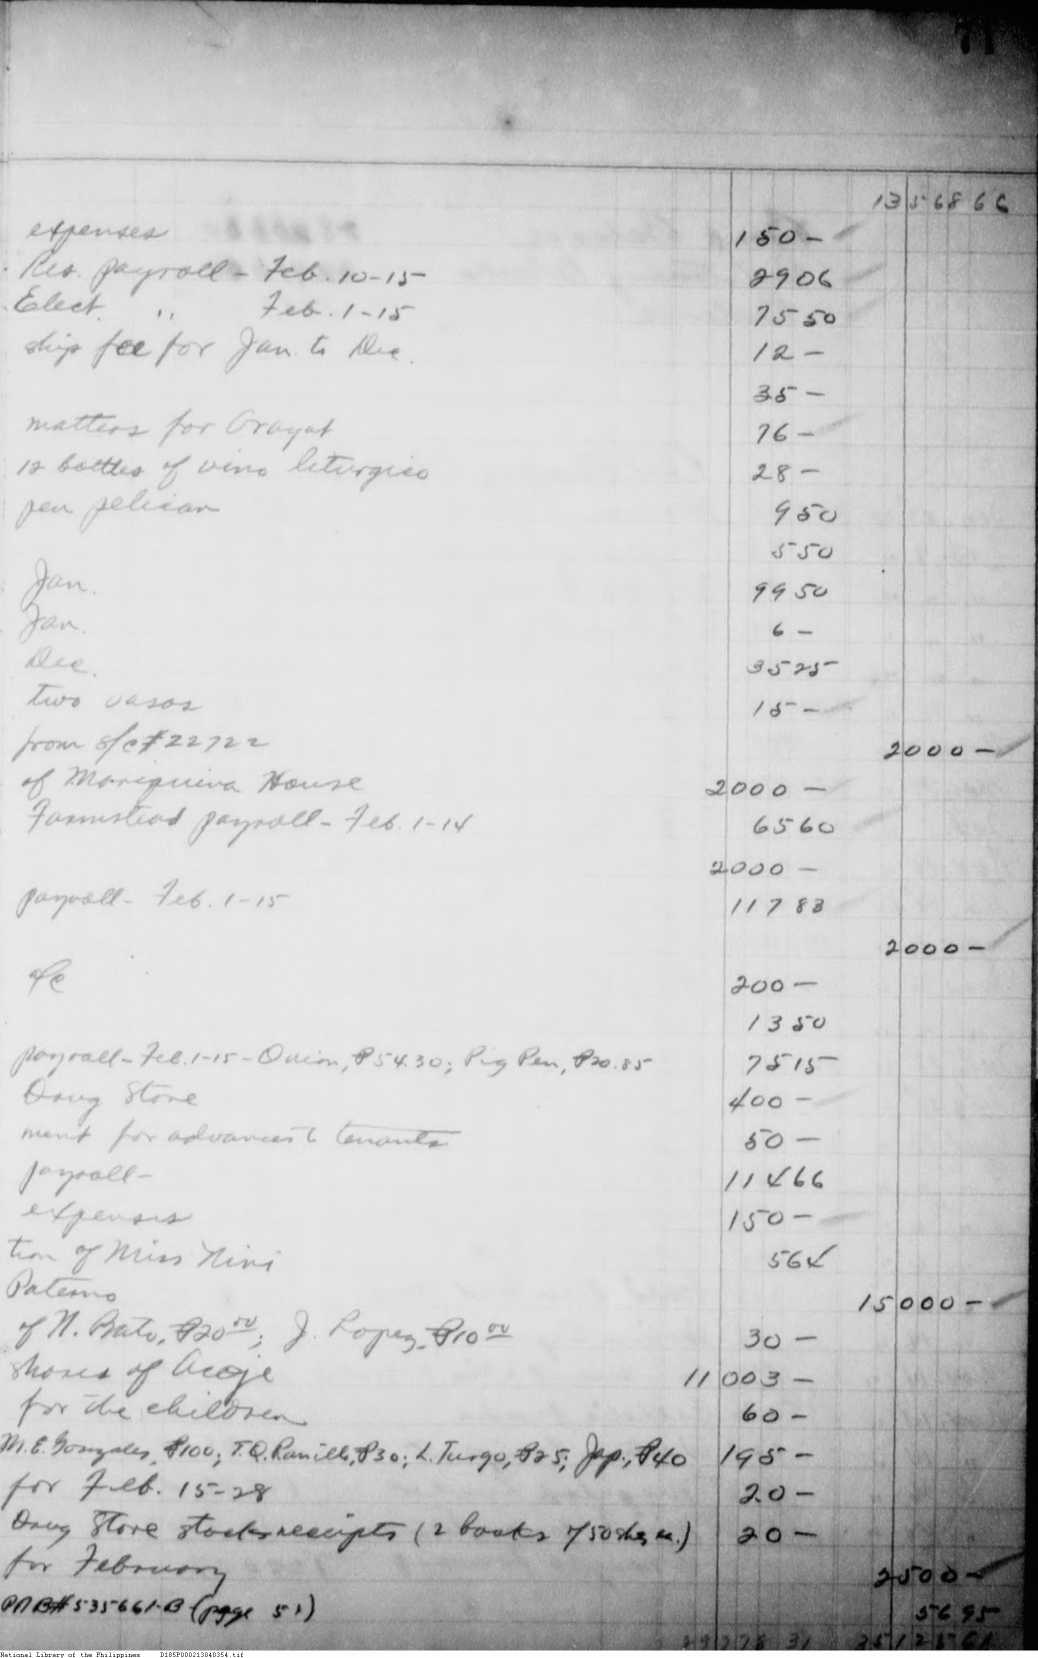 71
13 568 66
expenses 150 —
Res. payroll — Feb. 10-15 29 06
Elect. ,, Feb. 1-15 75 50
ship fee for Jan. to Dec. 12 —
35 —
matters for Arayat 76 —
12 bottles of vino liturgico 28 —
pen pelican 9 50
5 50
Jan. 99 50
Jan. 6 —
Dec. 35 25
two vasos 15 —
from S/C #22722 2000 —
of Mariquina House 2000 —
Farmstead payroll — Feb. 1-14 65 60
2000 —
payroll — Feb. 1-15 117 83
2000 —
200 —
13 50
payroll — Feb. 1-15 — Onion, ₱54.30; Pig Pen, ₱20.85 75 15
Drug Store 400 —
ment for advances to tenants 50 —
payroll — 114 66
expenses 150 —
tion of Miss Nini 5 64
Paterno 15000 —
of N. Bato, ₱20 00; J. Lopez, ₱10 00 30 —
shares of Acoje 11 003 —
for the children 60 —
M. E. Gonzales, ₱100; T. Q. Ranillo, ₱30; L. Turgo, ₱25; Jap., ₱40 195 —
for Feb. 15-28 20 —
Drug Store stocks receipts (2 books of 50 shs ea.) 20 —
for February 2500 —
PNB #535661-B (page 51) 56 95
National Library of the Philippines D185P000213040354.tif